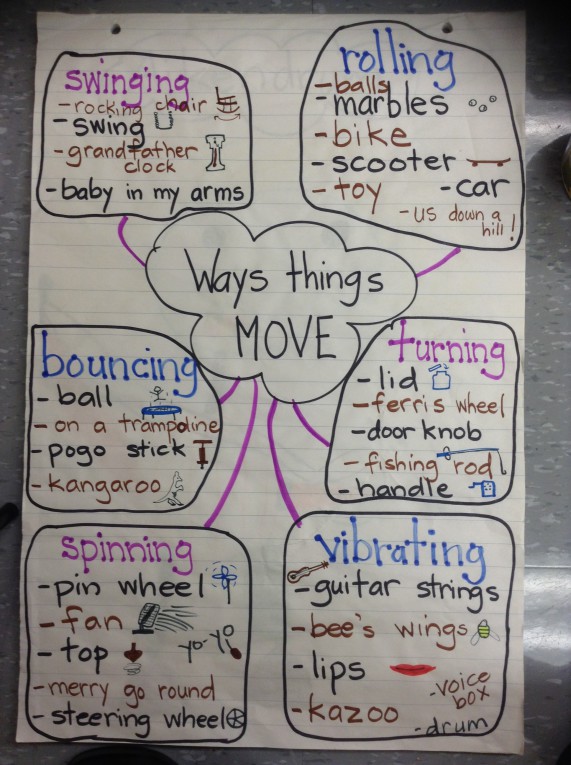 swinging
- rocking chair
- swing
- grandfather
clock
- baby in my arms
rolling
- balls
- marbles
- bike
- scooter
- toy - car
- us down a
hill!
Ways things
MOVE
bouncing
- ball
- on a trampoline
- pogo stick
- kangaroo
turning
- lid
- ferris wheel
- door knob
- fishing rod
- handle
spinning
- pin wheel
- fan
- top yo-yo
- merry go round
- steering wheel
vibrating
- guitar strings
- bee's wings
- lips
- voice
box
- kazoo
- drum